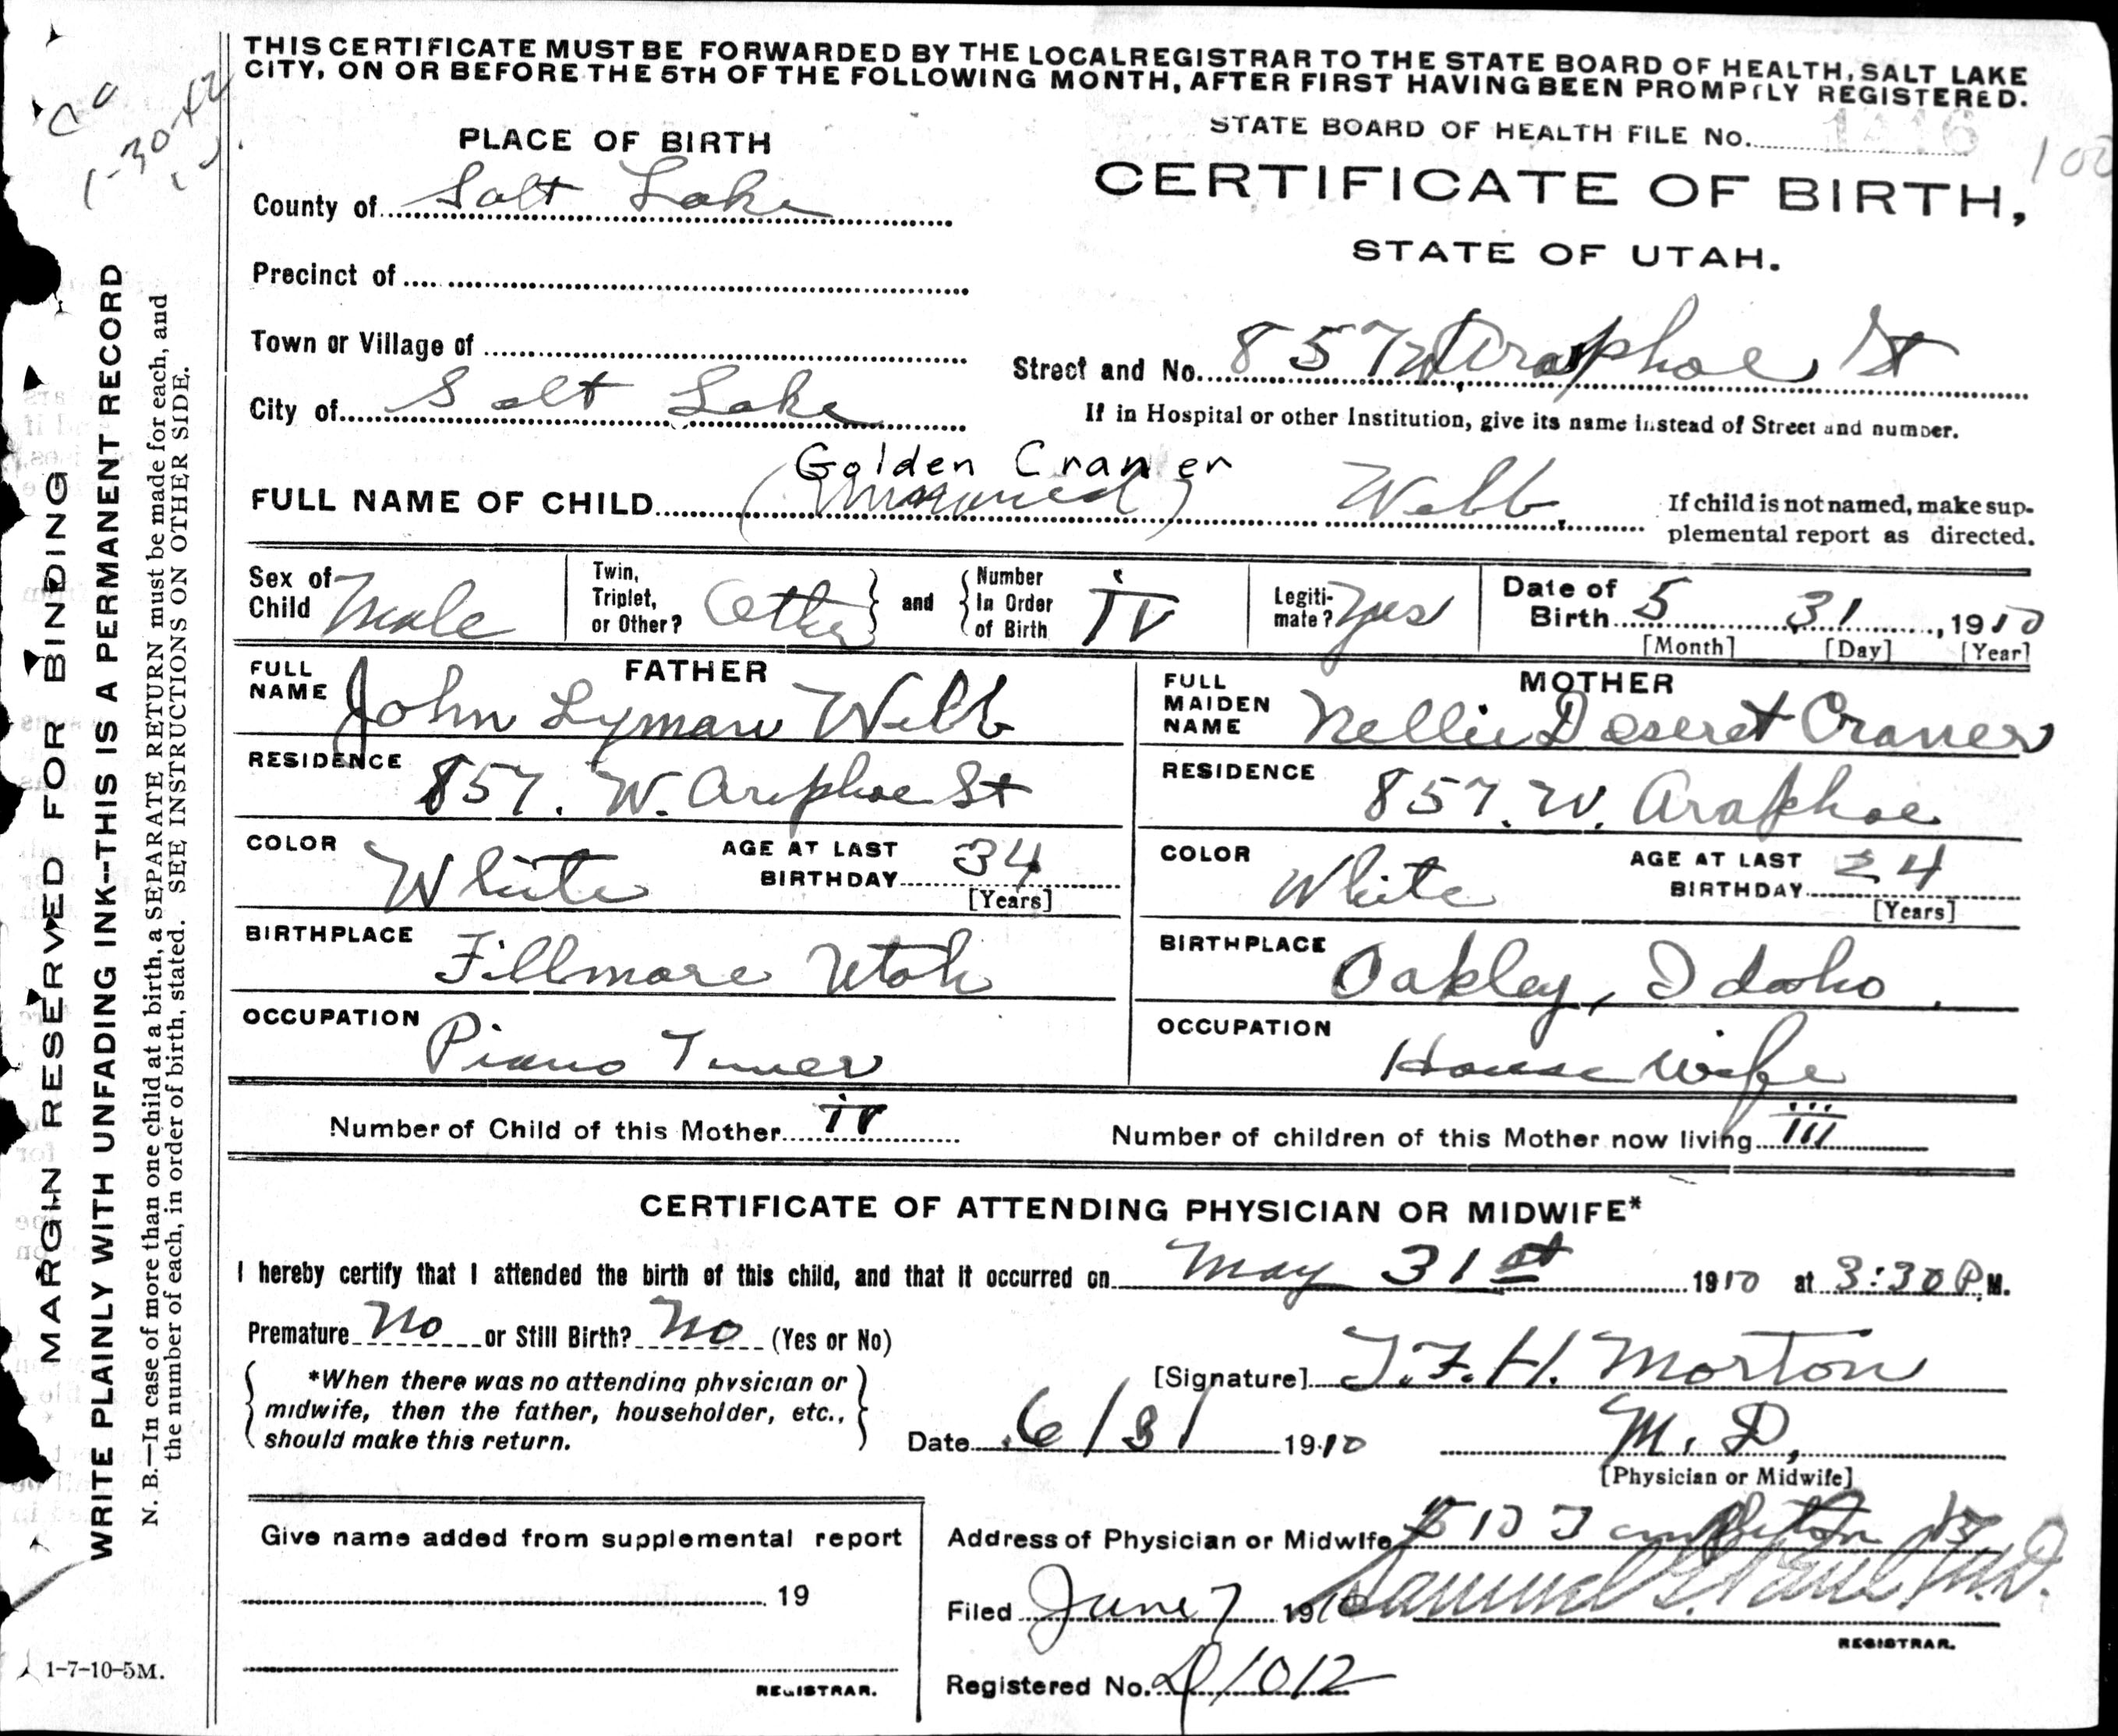 THIS CERTIFICATE MUST BE FORWARDED BY THE LOCAL REGISTRAR TO THE STATE BOARD OF HEALTH, SALT LAKE
CITY, ON OR BEFORE THE 5TH OF THE FOLLOWING MONTH, AFTER FIRST HAVING BEEN PROMPTLY REGISTERED.
STATE BOARD OF HEALTH FILE No.
100
PLACE OF BIRTH
CERTIFICATE OF BIRTH,
STATE OF UTAH.
County of Salt Lake
Precinct of
Town or Village of
Street and No. 857 W Araphoe St
City of Salt Lake
If in Hospital or other Institution, give its name instead of Street and number.
Golden Craner
FULL NAME OF CHILD (Unnamed) Webb
If child is not named, make sup-
plemental report as directed.
Sex of Child Male
Twin, Triplet, or Other? Other and Number In Order of Birth iv
Legiti-mate? Yes
Date of Birth 5 31, 1910
[Month] [Day] [Year]
FATHER
FULL NAME John Lyman Webb
RESIDENCE 857. W. Araphoe St
COLOR White AGE AT LAST BIRTHDAY 34
[Years]
BIRTHPLACE Fillmore Utah
OCCUPATION Piano Tuner
MOTHER
FULL MAIDEN NAME Nellie Deseret Craner
RESIDENCE 857. W. Araphoe
COLOR White AGE AT LAST BIRTHDAY 24
[Years]
BIRTHPLACE Oakley, Idaho
OCCUPATION House wife
Number of Child of this Mother iv
Number of children of this Mother now living iii
CERTIFICATE OF ATTENDING PHYSICIAN OR MIDWIFE*
I hereby certify that I attended the birth of this child, and that it occurred on May 31st 1910 at 3:30 P.M.
Premature No or Still Birth? No (Yes or No)
*When there was no attending physician or
midwife, then the father, householder, etc.,
should make this return.
[Signature] T.F.H. Morton
Date 6/3/ 1910 M.D.
[Physician or Midwife]
Give name added from supplemental report
19
REGISTRAR.
Address of Physician or Midwife 510 Templeton
Filed June 7 1910 Samuel G. Paul M.D.
REGISTRAR.
Registered No. D1012
MARGIN RESERVED FOR BINDING
WRITE PLAINLY WITH UNFADING INK--THIS IS A PERMANENT RECORD
N. B.—In case of more than one child at a birth, a SEPARATE RETURN must be made for each, and
the number of each, in order of birth, stated. SEE INSTRUCTIONS ON OTHER SIDE.
1-30-42
1-7-10-5M.